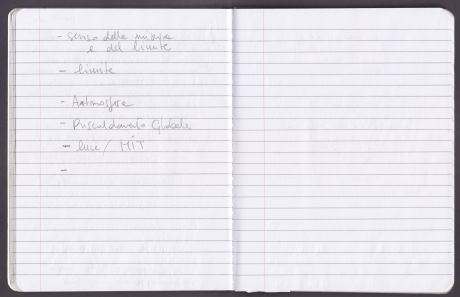 - senso della misura
e del limite
- limite
- Atmosfera
- Riscaldamento Globale
- luce / MIT
-